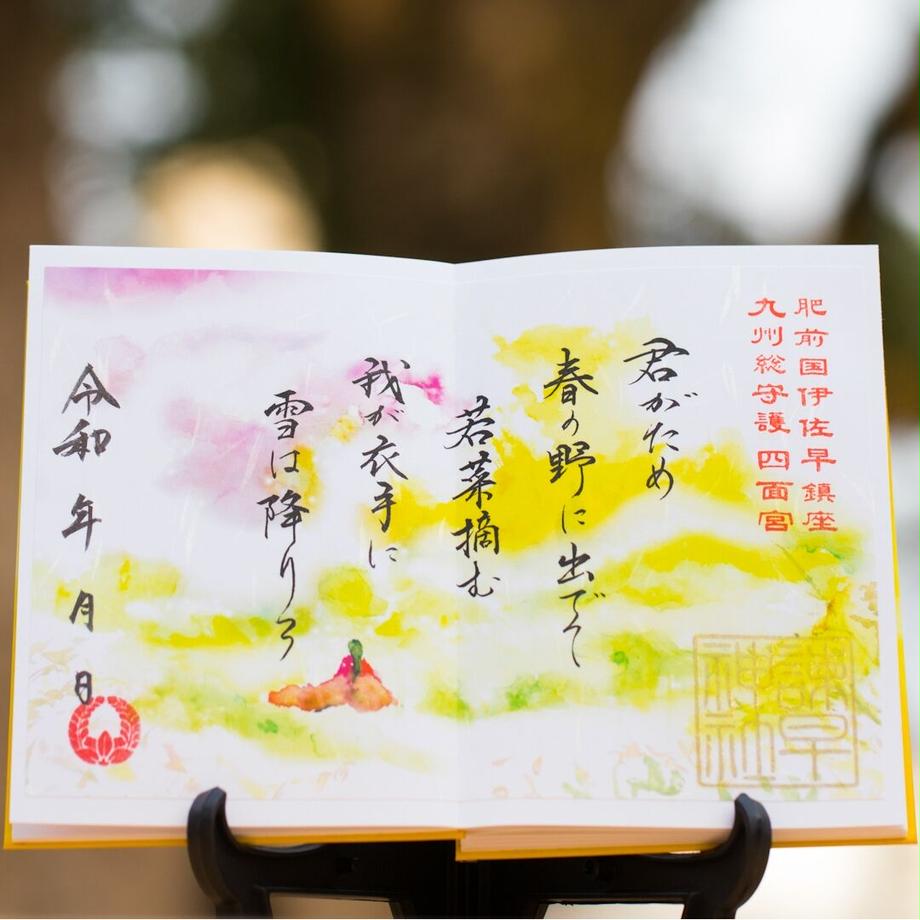 肥前国伊佐早鎮座
九州総守護四面宮
君がため
春の野に出でて
若菜摘む
我が衣手に
雪は降りつつ
令和 年 月 日
諫早
神社